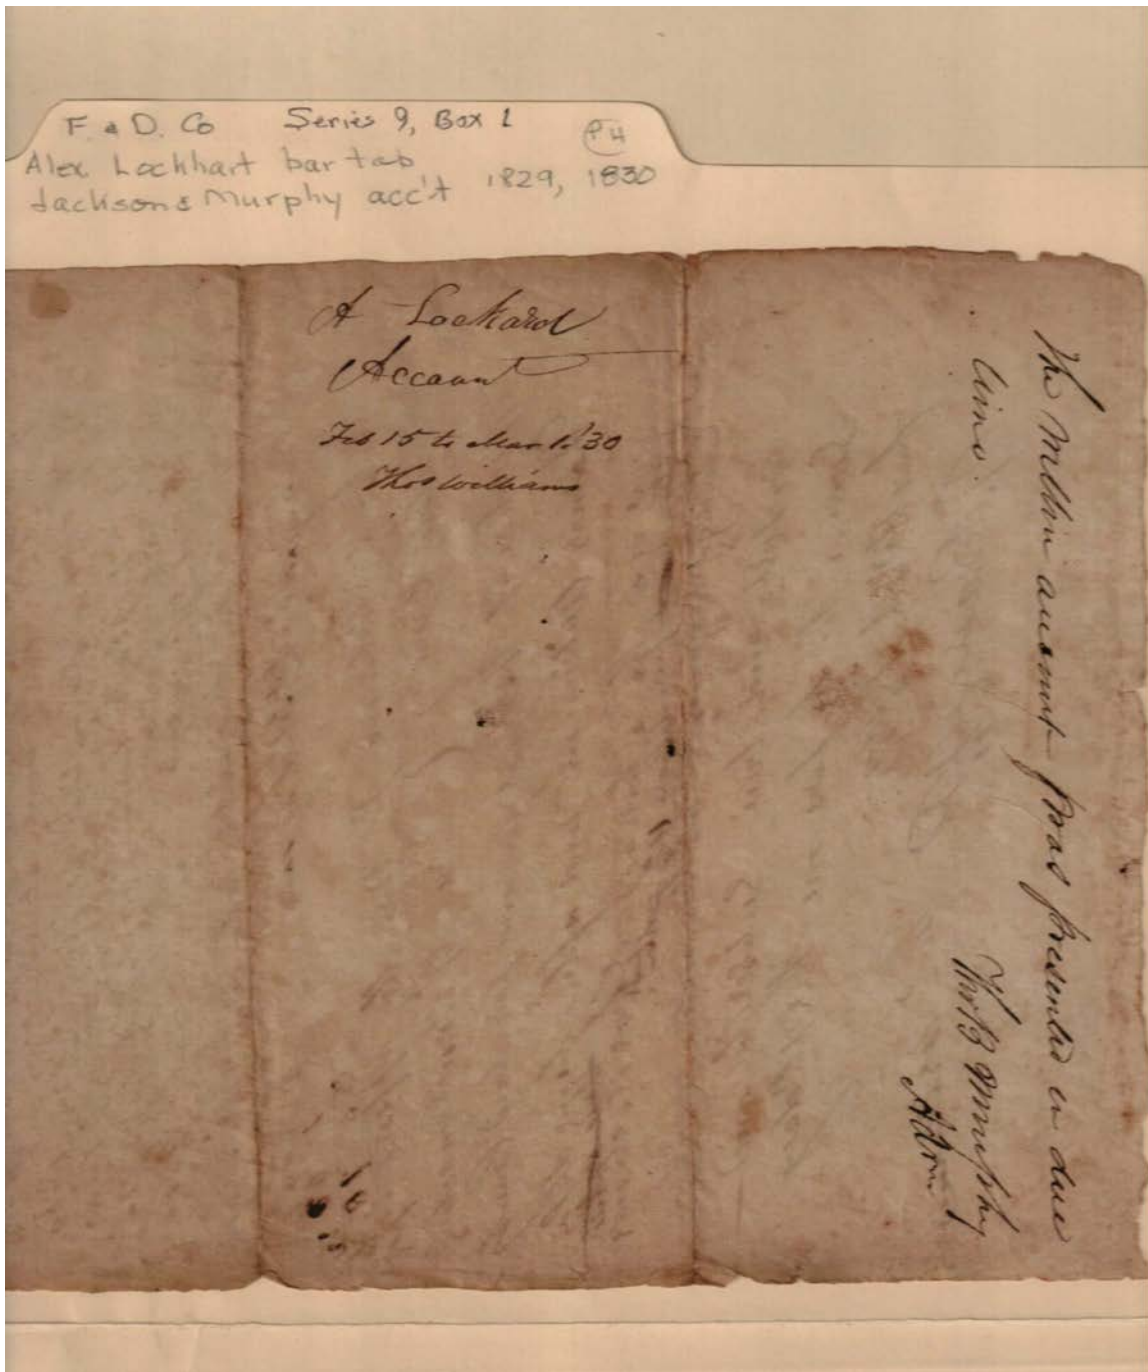 F. & D. Co Series 9, Box 1
P4
Alex Lockhart bar tab
Jackson & Murphy acc't 1829, 1830
A Lockard
Account
Feb 15 to Mar 1st '30
Thos Williams
The within amount was presented in due
time
Thos B Murphy
Adm